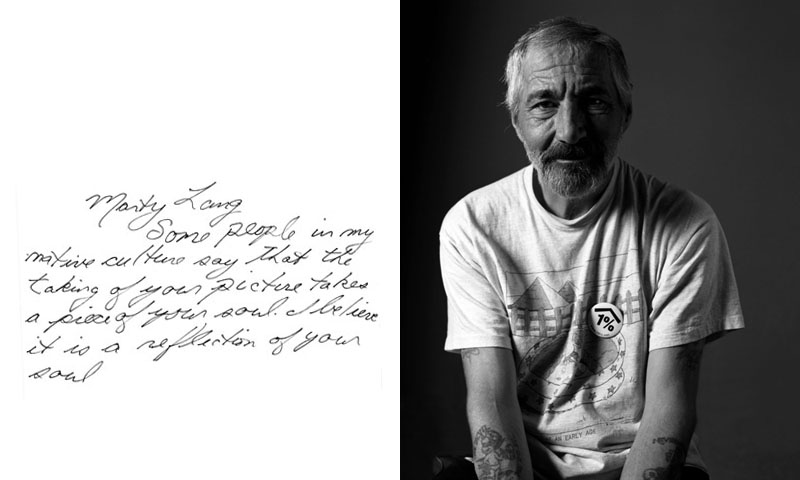 Marty Lang
Some people in my
native culture say that the
taking of your picture takes
a piece of your soul. I believe
it is a reflection of your
soul
1%
AN EARLY AGE